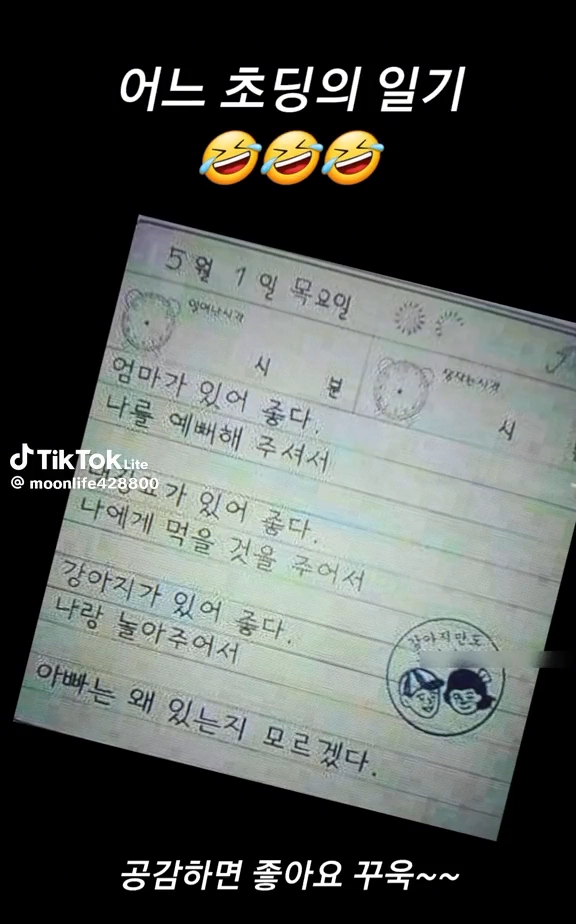 어느 초딩의 일기
5월 1일 목요일
일어난시각
시 분
잠자는시각
시
엄마가 있어 좋다.
나를 예뻐해 주셔서
TikTok Lite
@ moonlife428800
가 있어 좋다.
나에게 먹을 것을 주어서
강아지가 있어 좋다.
나랑 놀아주어서
강아지만도
아빠는 왜 있는지 모르겠다.
공감하면 좋아요 꾸욱~~